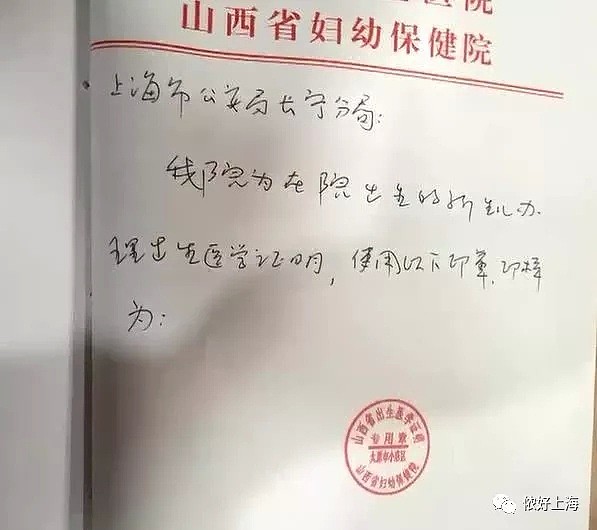 医院
山西省妇幼保健院
上海市公安局长宁分局:
我院为在院出生的新生儿办
理出生医学证明,使用以下印章,印样
为:
山西省出生医学证明
专用章
太原市小店区
山西省妇幼保健院
侬好上海